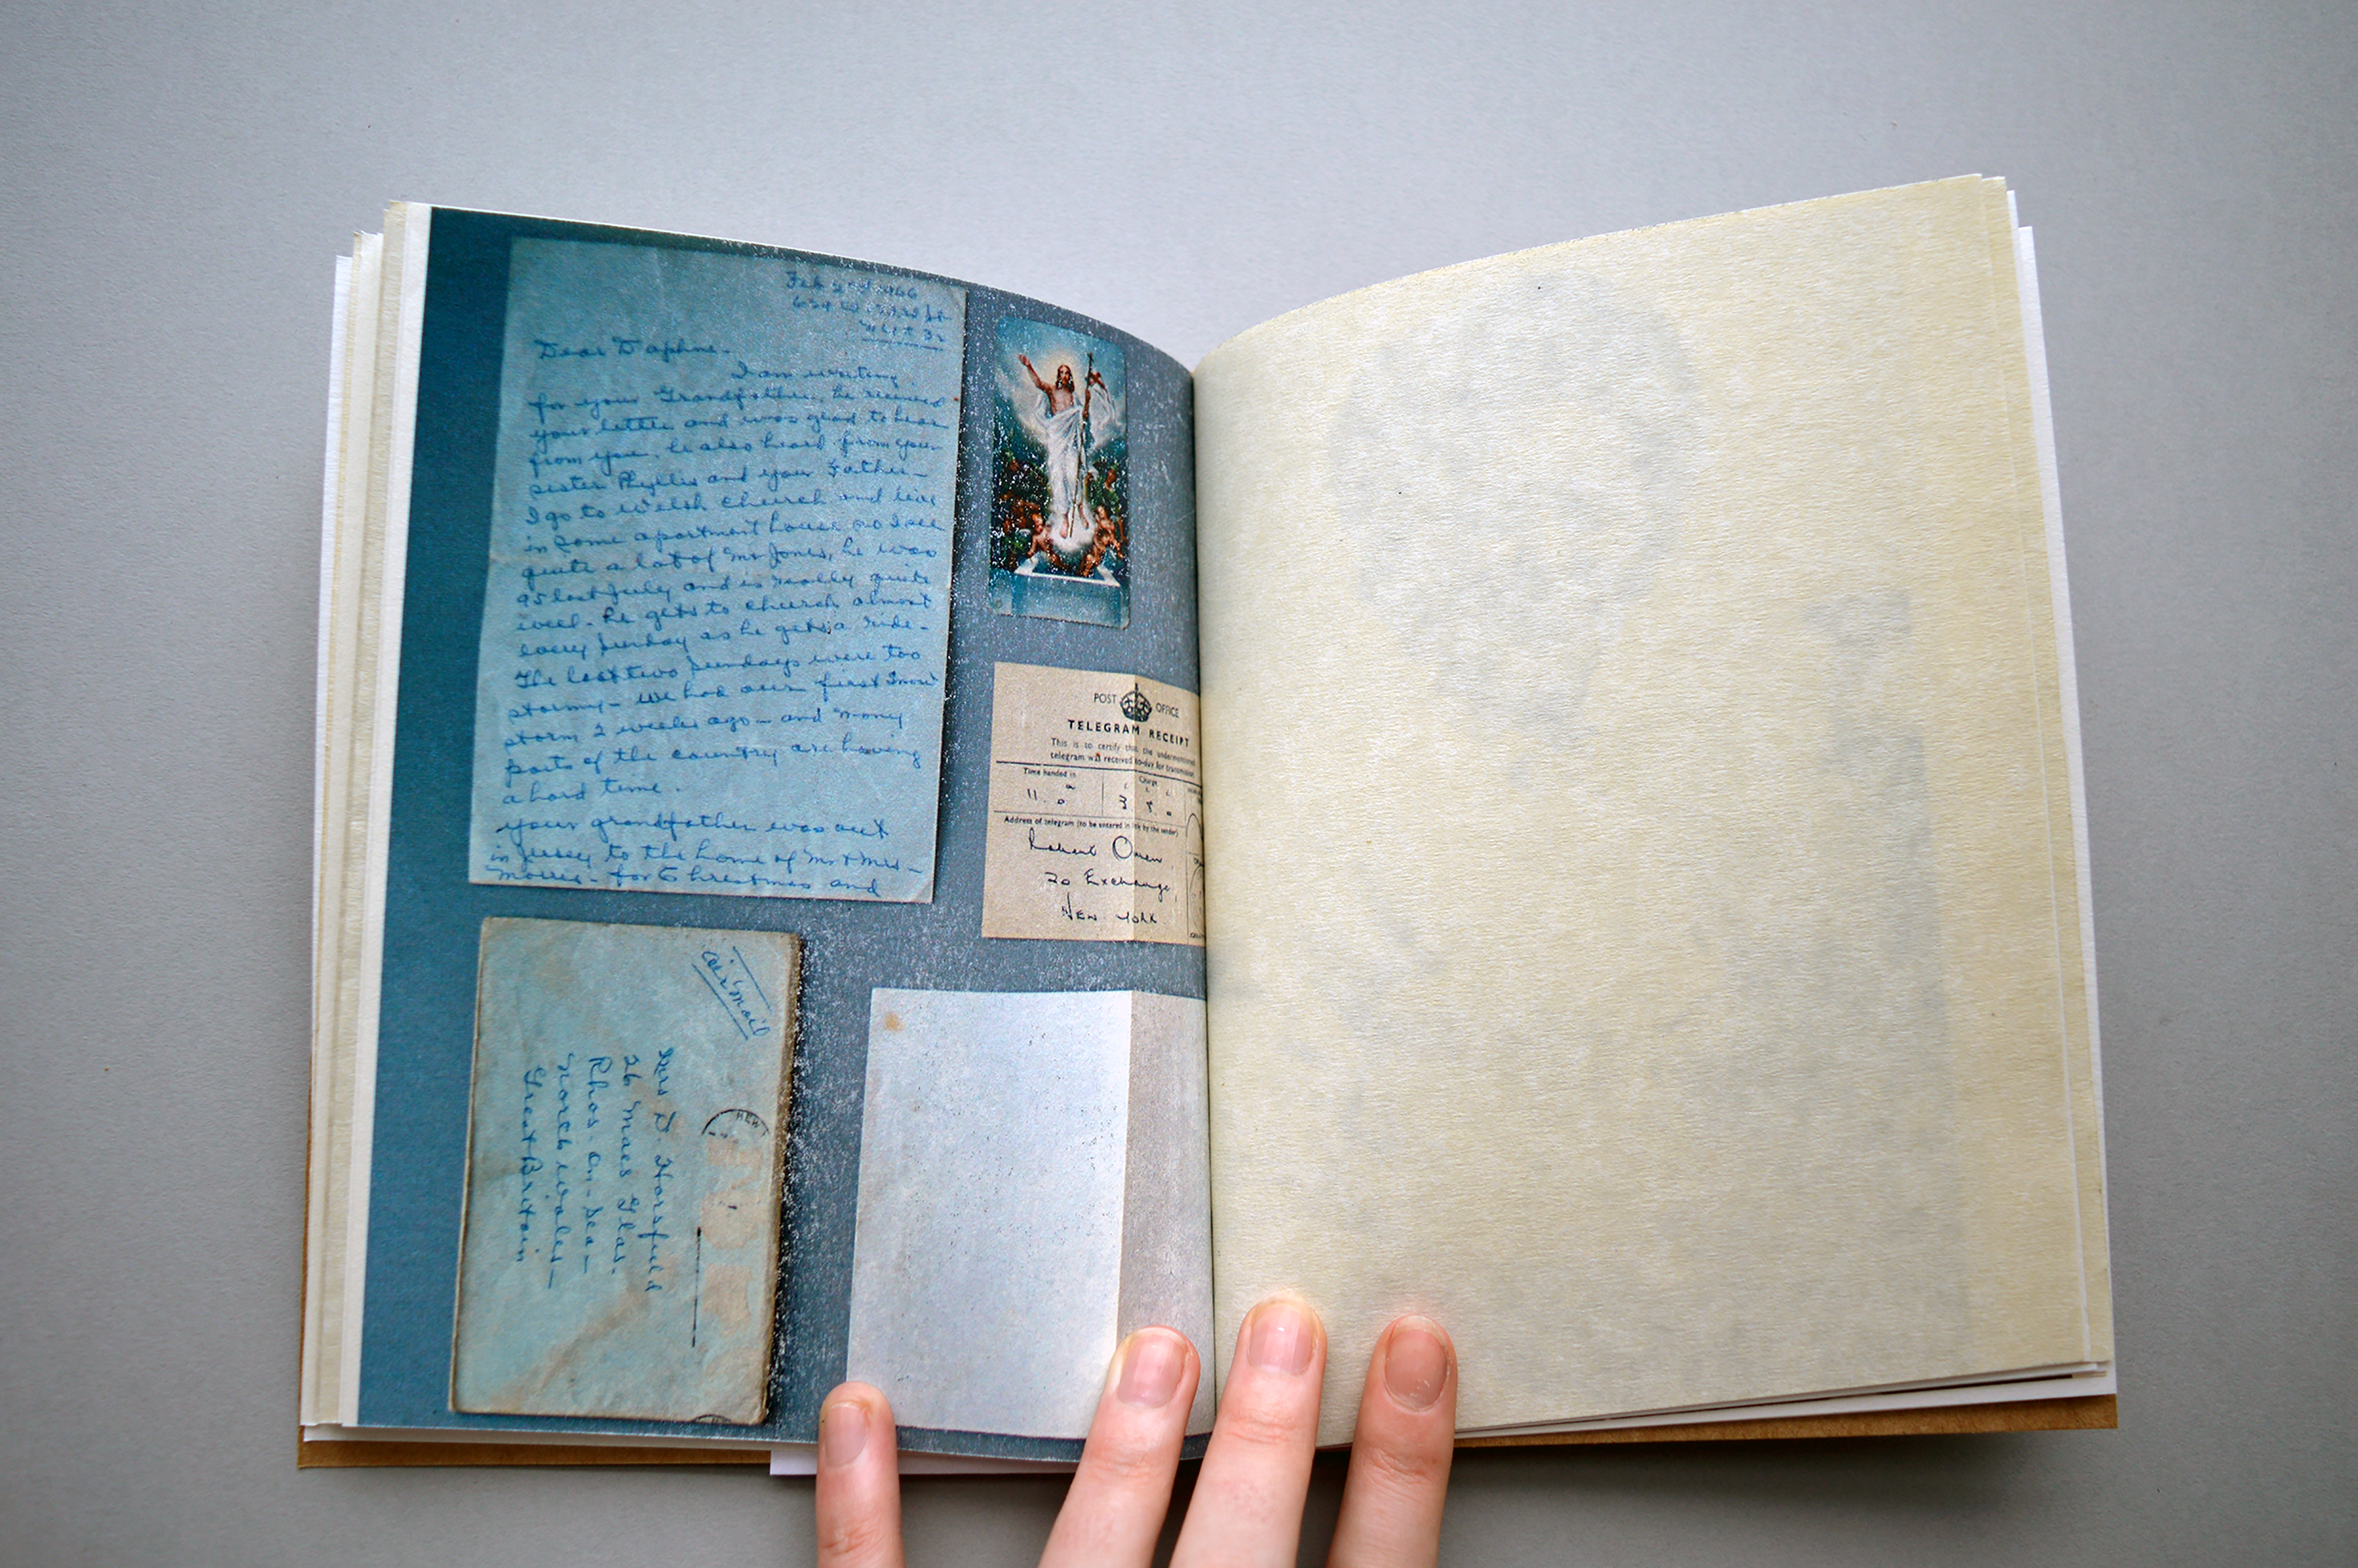 Feb 2nd 1966
Dear Daphne -
I am writing
for your Grandfather, he received
your letter and was glad to hear
from you. he also heard from your
sister Phyllis and your Father -
I go to Welsh church and live
in same apartment house so I see
quite a lot of Mr Jones, he was
95 last July and is really quite
well - he gets to church almost
every Sunday as he gets a ride -
The last two Sundays were too
stormy - we had our first snow
storm 2 weeks ago - and many
parts of the country are having
a hard time.
your grandfather was out
in Jersey to the home of Mr & Mrs -
Morris - for Christmas and
POST OFFICE
TELEGRAM RECEIPT
This is to certify that the undermentioned
telegram was received to-day for transmission
Time handed in
Charge
11.0
3 5 0
Address of telegram (to be entered in by the sender)
Robert Owen
20 Exchange,
NEW YORK
airmail
Mrs D. Horsfield
26 Maes Glas.
Rhos-on-Sea -
North Wales -
Great Britain
NEW